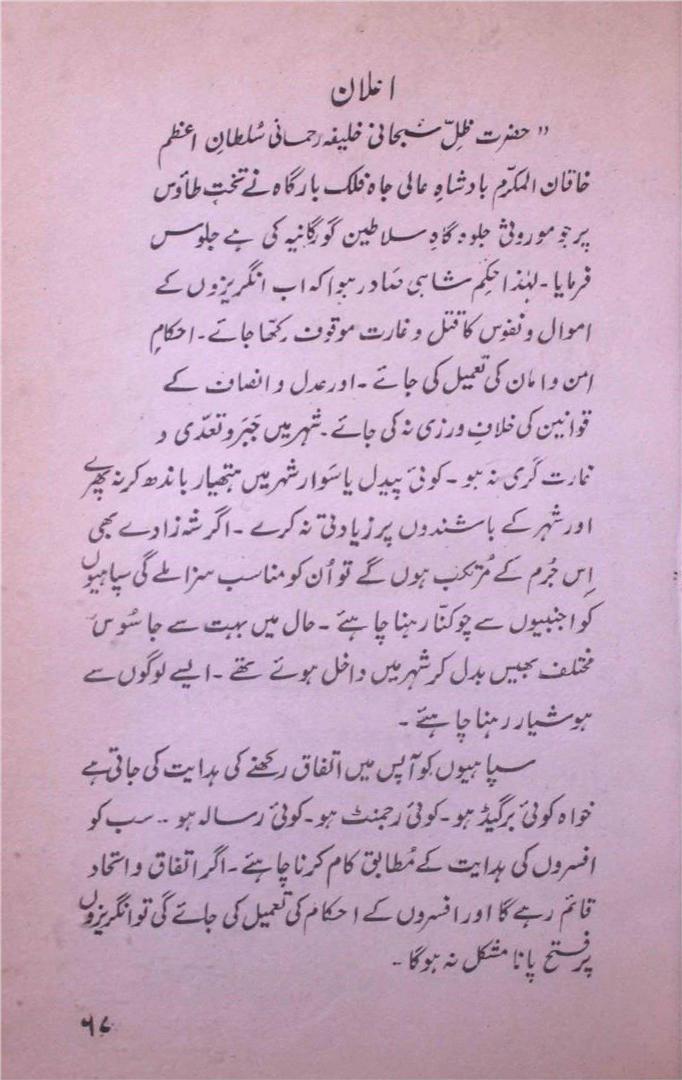 اعلان
" حضرت ظلِّ سبحانی خلیفہ رحمانی سُلطانِ اعظم
خاقان المکرّم بادشاہِ عالی جاہ فلک بارگاہ نے تختِ طاؤس
پر جو موروثی جلوہ گاہِ سلاطین گورگانیہ کی ہے جلوس
فرمایا۔ لہٰذا حکم شاہی صَادر ہوا کہ اب انگریزوں کے
اموال و نفوس کا قتل و غارت موقوف رکھّا جائے۔ احکامِ
امن و امان کی تعمیل کی جائے۔ اور عدل و انصاف کے
قوانین کی خلاف ورزی نہ کی جائے۔ شہر میں جَبَر و تعدّی و
غارت گری نہ ہو۔ کوئی پیدل یا سَوار شہر میں ہتھیار باندھ کر نہ پھرے
اور شہر کے باشندوں پر زیادتی نہ کرے۔ اگر شہ زادے بھی
اِس جُرم کے مُرتکب ہوں گے تو اُن کو مناسب سزا ملے گی سپاہیوں
کو اجنبیوں سے چوکنّا رہنا چاہئے۔ حال میں بہت سے جاسُوس
مختلف بھیس بدل کر شہر میں داخل ہوئے تھے۔ ایسے لوگوں سے
ہوشیار رہنا چاہئے۔
سپاہیوں کو آپس میں اتفاق رکھنے کی ہدایت کی جاتی ہے
خواہ کوئی برگیڈ ہو۔ کوئی رجمنٹ ہو۔ کوئی رسالہ ہو۔۔ سب کو
افسروں کی ہدایت کے مُطابق کام کرنا چاہئے۔ اگر اتفاق و اتحاد
قائم رہے گا اور افسروں کے احکام کی تعمیل کی جائے گی تو انگریزوں
پر فتح پانا مشکل نہ ہوگا۔
۶۷